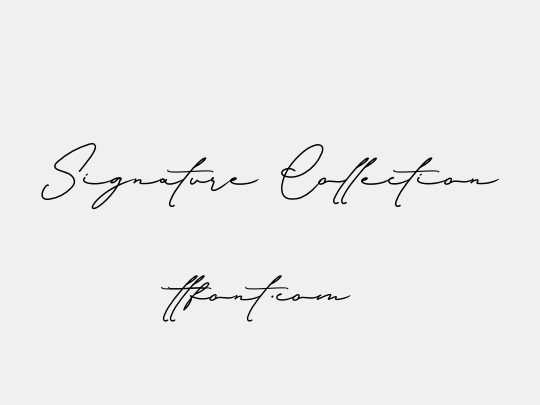 Signature Collection
ttfont.com